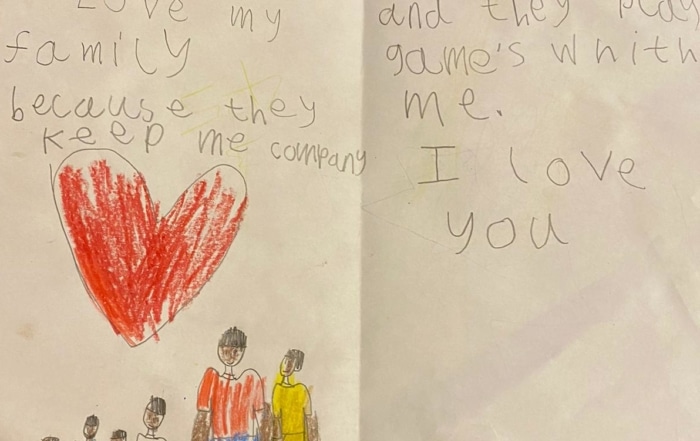 Love my
family
because they
keep me company
and they play
game's whith
me.
I love
you